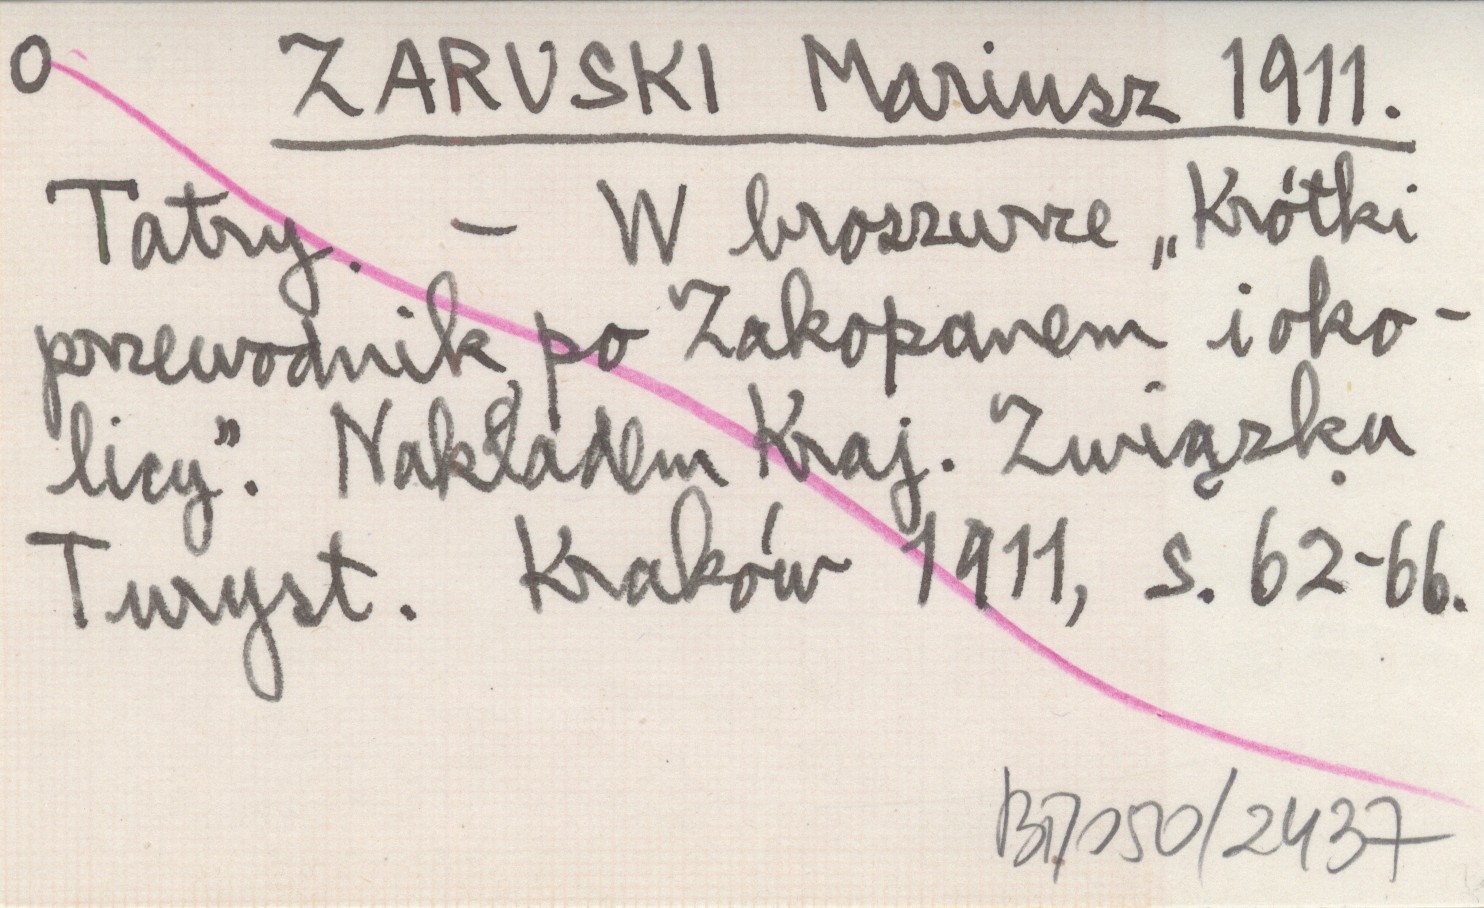 O ZARUSKI Mariusz 1911.
Tatry. – W broszurze „Krótki
przewodnik po Zakopanem i oko-
licy”. Nakładem Kraj. Związku
Turyst. Kraków 1911, s. 62-66.